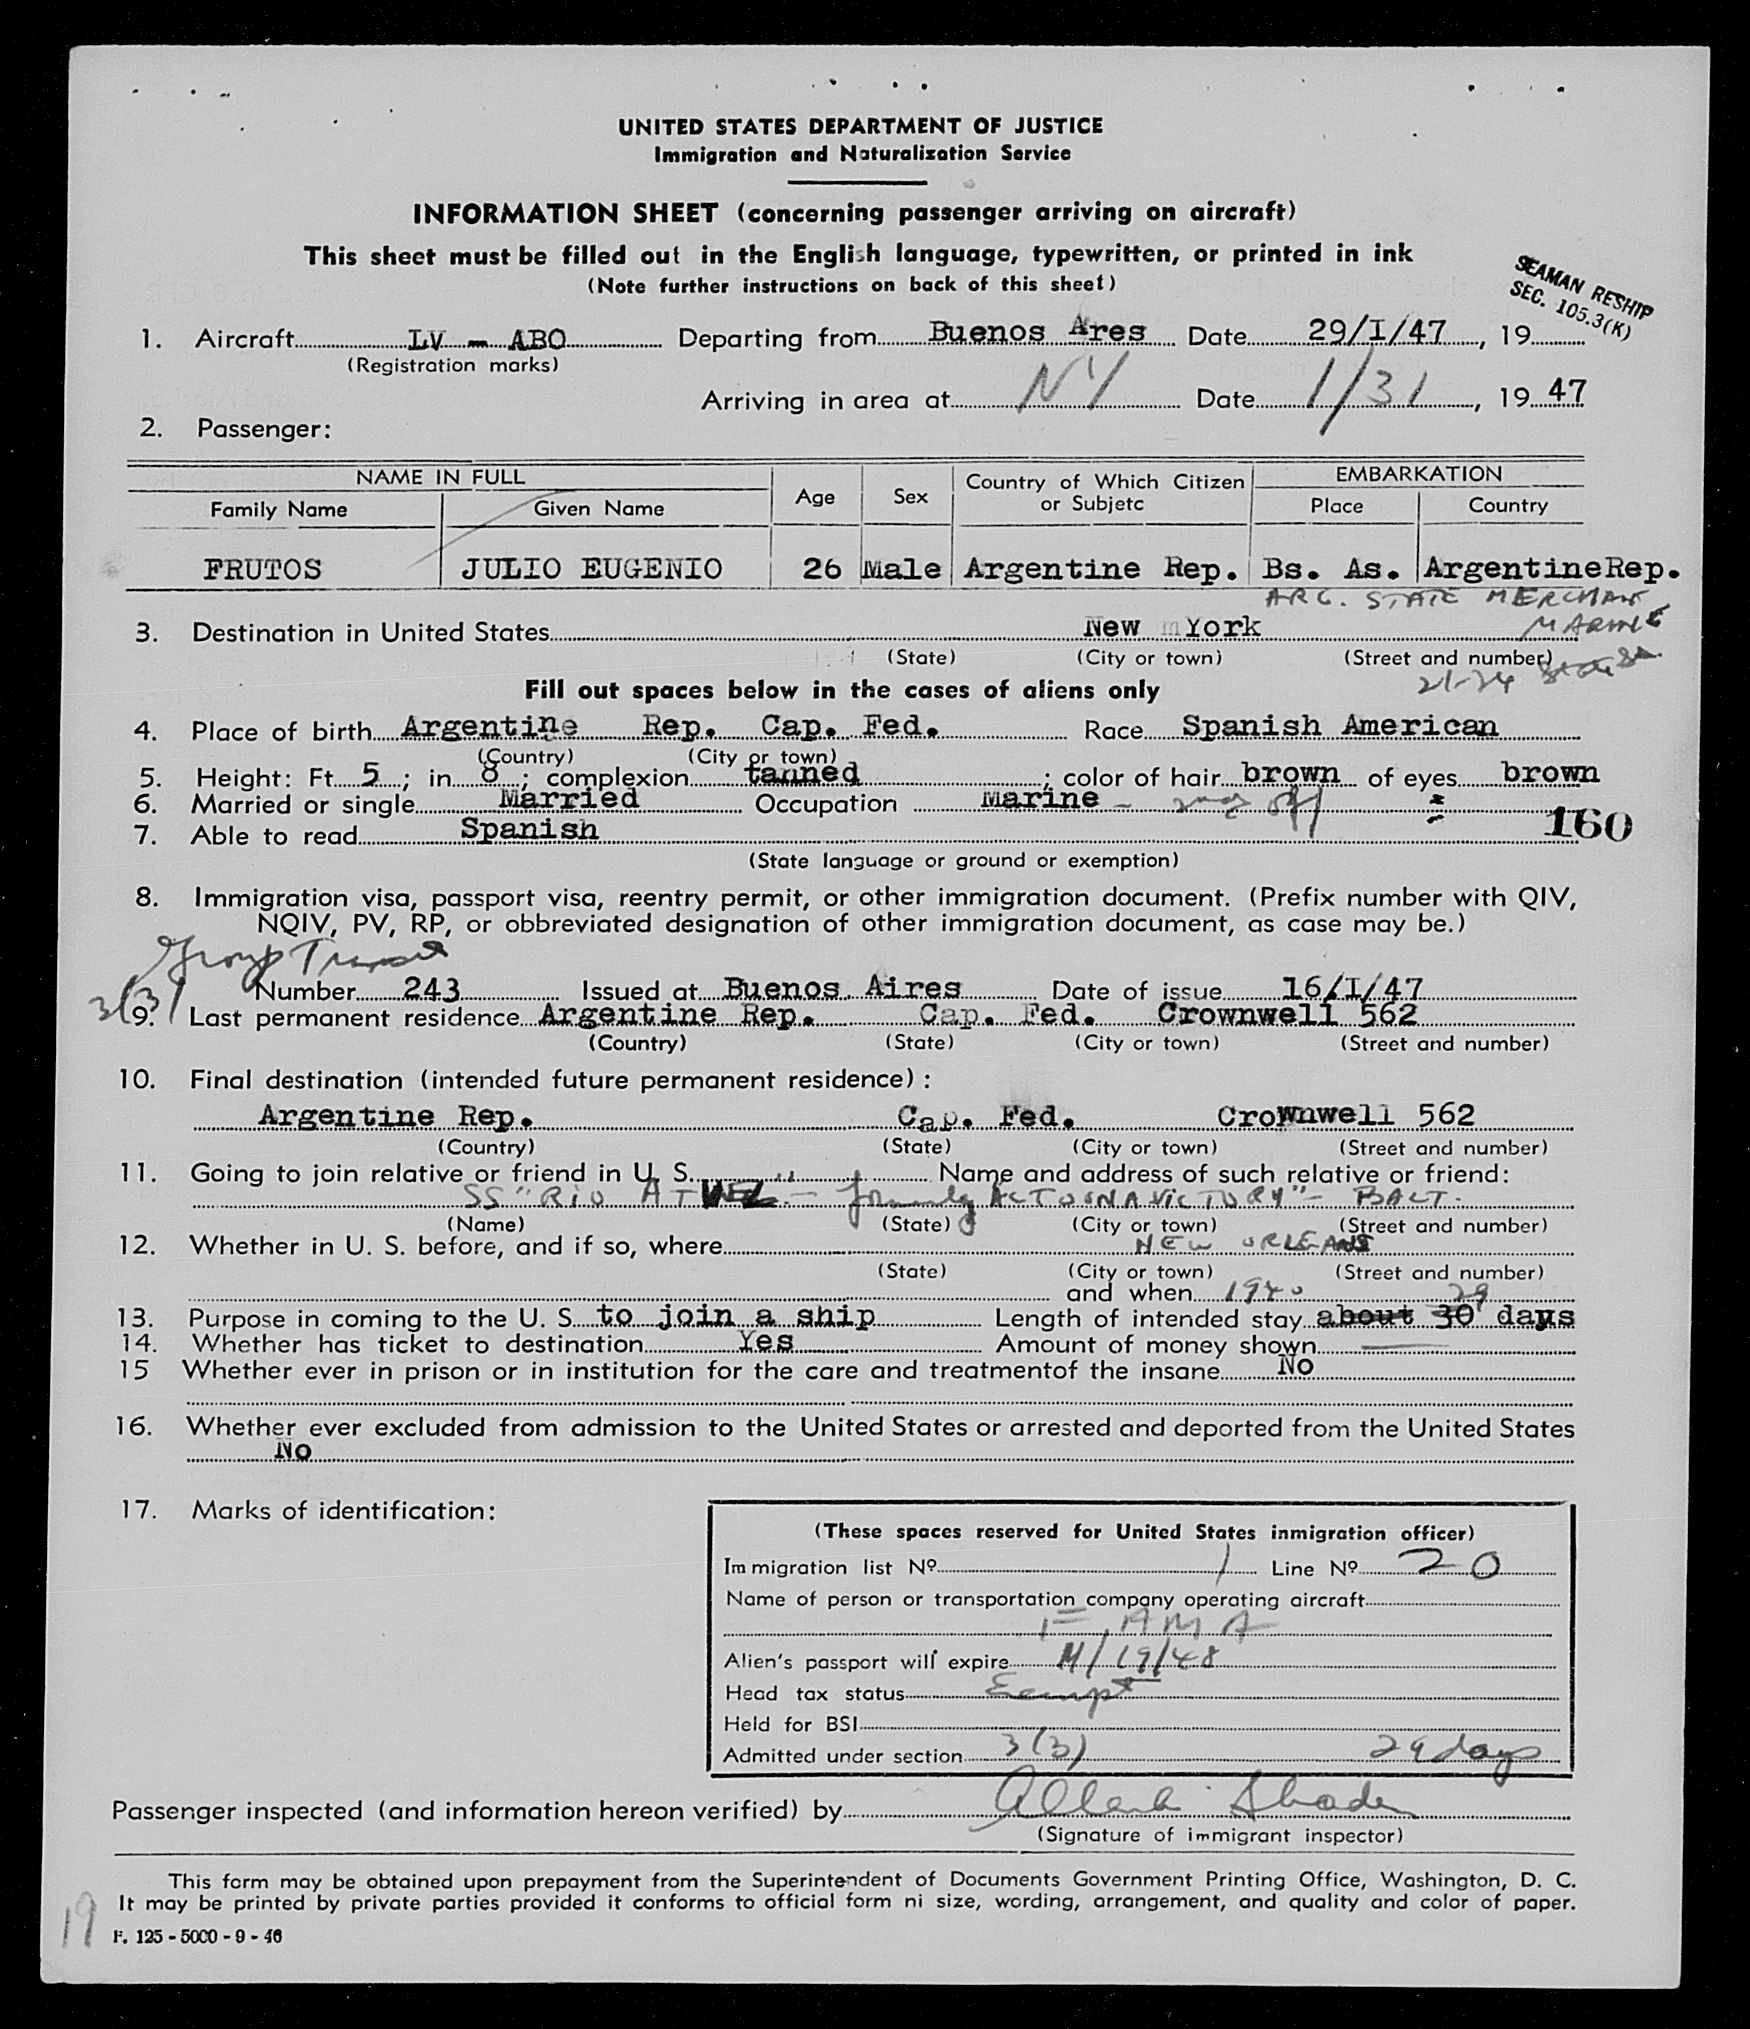 UNITED STATES DEPARTMENT OF JUSTICE
Immigration and Naturalization Service
INFORMATION SHEET (concerning passenger arriving on aircraft)
This sheet must be filled out in the English language, typewritten, or printed in ink
(Note further instructions on back of this sheet)
SEAMAN RESHIP
SEC. 105.3(K)
1. Aircraft LV - ABO Departing from Buenos Ares Date 29/I/47, 19
(Registration marks)
Arriving in area at NY Date 1/31, 19 47
2. Passenger:
NAME IN FULL Age Sex Country of Which Citizen or Subjetc EMBARKATION
Family Name Given Name Place Country
FRUTOS JULIO EUGENIO 26 Male Argentine Rep. Bs. As. Argentine Rep.
ARG. STATE MERCHANT
MARINE
3. Destination in United States New York
(State) (City or town) (Street and number)
21-24 State St.
Fill out spaces below in the cases of aliens only
4. Place of birth Argentine Rep. Cap. Fed. Race Spanish American
(Country) (City or town)
5. Height: Ft. 5; in. 8; complexion tanned; color of hair brown of eyes brown
6. Married or single Married Occupation Marine -
7. Able to read Spanish 160
(State language or ground or exemption)
8. Immigration visa, passport visa, reentry permit, or other immigration document. (Prefix number with QIV,
NQIV, PV, RP, or obbreviated designation of other immigration document, as case may be.)
Group Transit
Number 243 Issued at Buenos Aires Date of issue 16/I/47
3(3)
9. Last permanent residence Argentine Rep. Cap. Fed. Crownwell 562
(Country) (State) (City or town) (Street and number)
10. Final destination (intended future permanent residence):
Argentine Rep. Cap. Fed. Crownwell 562
(Country) (State) (City or town) (Street and number)
11. Going to join relative or friend in U. S. Name and address of such relative or friend:
SS "RIO ATUEL - formerly VICTORY" - BALT.
(Name) (State) (City or town) (Street and number)
12. Whether in U. S. before, and if so, where NEW ORLEANS
(State) (City or town) (Street and number)
and when 1940
29
13. Purpose in coming to the U. S. to join a ship Length of intended stay about 30 days
14. Whether has ticket to destination Yes Amount of money shown
15 Whether ever in prison or in institution for the care and treatmentof the insane No
16. Whether ever excluded from admission to the United States or arrested and deported from the United States
No
17. Marks of identification:
(These spaces reserved for United States inmigration officer)
Immigration list Nº 1 Line Nº 20
Name of person or transportation company operating aircraft
FAMA
Alien's passport will expire 11/19/48
Head tax status Exempt
Held for BSI
Admitted under section 3(3) 29 days
Passenger inspected (and information hereon verified) by
(Signature of immigrant inspector)
This form may be obtained upon prepayment from the Superintendent of Documents Government Printing Office, Washington, D. C.
It may be printed by private parties provided it conforms to official form ni size, wording, arrangement, and quality and color of paper.
19
F. 125 - 5000 - 9 - 46